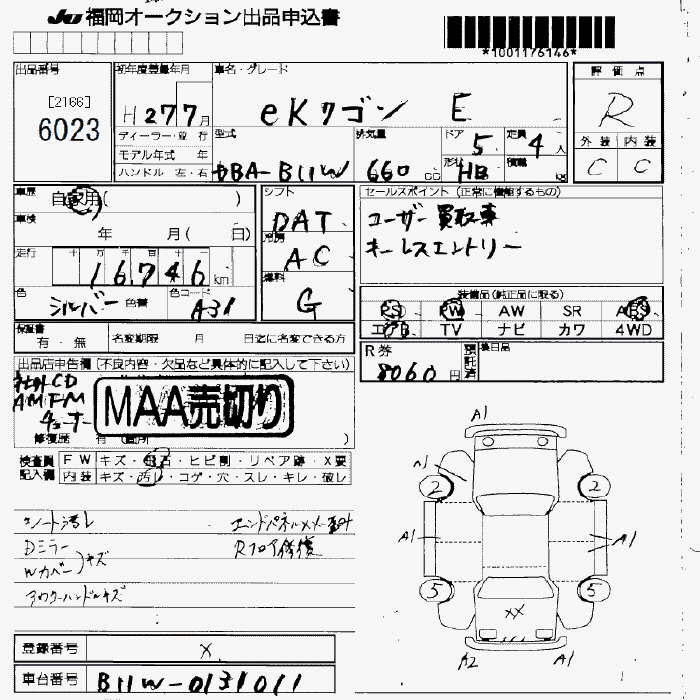 JU 福岡オークション出品申込書
*1001176146*
出品番号
[2166]
6023
初年度登録年月
H 27 7月
ディーラー・並行
モデル年式 年
ハンドル 左・右
車名・グレード
eKワゴン E
型式
DBA-B11W
排気量
660 cc
ドア
5
形状
HB
定員
4人
積載
kg
評価点
R
外装 内装
C C
車歴
自家用( )
車検
年 月( 日)
走行
十 万 千 百 十 一
16,746 km
色
シルバー 色替
色コード
A31
シフト
DAT
冷房
AC
燃料
G
セールスポイント (正常に機能するもの)
ユーザー買取車
キーレスエントリー
装備品(純正品に限る)
PS PW AW SR ABS
エアB TV ナビ カワ 4WD
保証書
有・無
名変期限 月 日迄に名変できる方
R券
8060円
預託済
後日品
出品店申告欄 (不良内容・欠品など具体的に記入して下さい)
社外CD
AMFM
チューナー
MAA売切り
修復歴 有 (箇所 )
検査員記入欄
FW キズ・飛石・ヒビ割・リペア跡・X要
内装 キズ・汚レ・コゲ・穴・スレ・キレ・破レ
シート汚レ
Dミラー
Wカバー キズ
アウターハンドルキズ
エンドパネル
Rフロア修復
A1
A1
2 2
A1 A1
5 5
XX
A2 A1
登録番号 X
車台番号 B11W-0131011